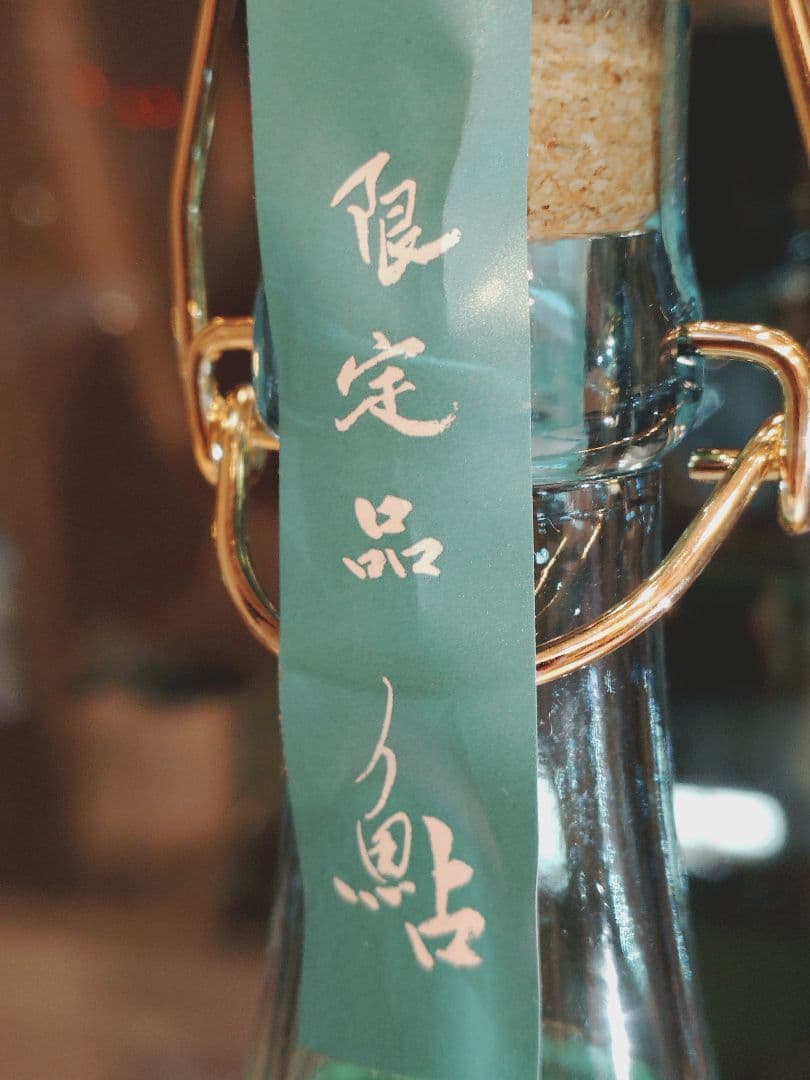 限定品
鮎